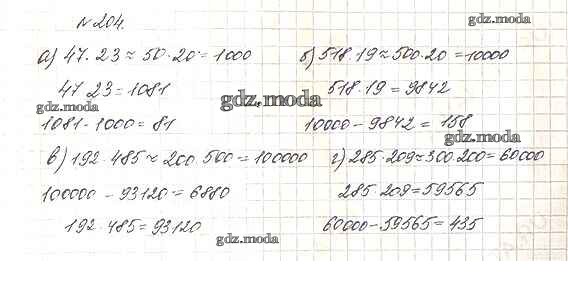 № 204.
gdz.moda
а) 47·23 ≈ 50·20 = 1000
47 23 = 1081
gdz.moda
1081-1000 = 81
б) 518·19 ≈ 500·20 = 10000
518·19 = 9842
gdz.moda
10000 - 9842 = 158
gdz.moda
в) 192·485 ≈ 200 500 = 100000
100000 - 93120 = 6880
192·485 = 93120
gdz.moda
г) 285·209 ≈ 300·200 = 60000
285·209 = 59565
60000 - 59565 = 435
gdz.moda